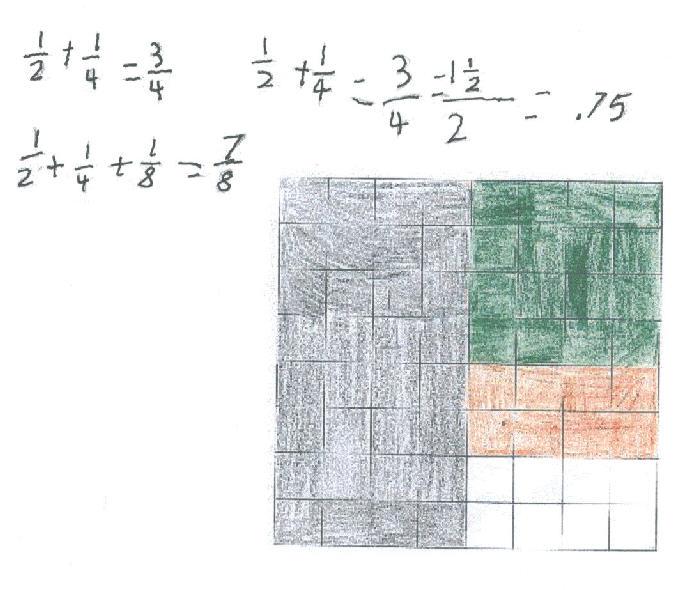 1/2 + 1/4 = 3/4
1/2 + 1/4 = 3/4 = 1 1/2 / 2 = .75
1/2 + 1/4 + 1/8 = 7/8